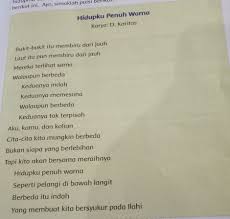 berikut ini. Ayo, simaklah puisi berikut
Hidupku Penuh Warna
Karya: D. Karitas
Bukit-bukit itu membiru dari jauh
Laut itu pun membiru dari jauh
Mereka terlihat sama
Walaupun berbeda
Keduanya indah
Keduanya memesona
Walaupun berbeda
Keduanya tak terpisah
Aku, kamu, dan kalian
Cita-cita kita mungkin berbeda
Bukan siapa yang berlebihan
Tapi kita akan bersama meraihnya
Hidupku penuh warna
Seperti pelangi di bawah langit
Berbeda itu indah
Yang membuat kita bersyukur pada Ilahi